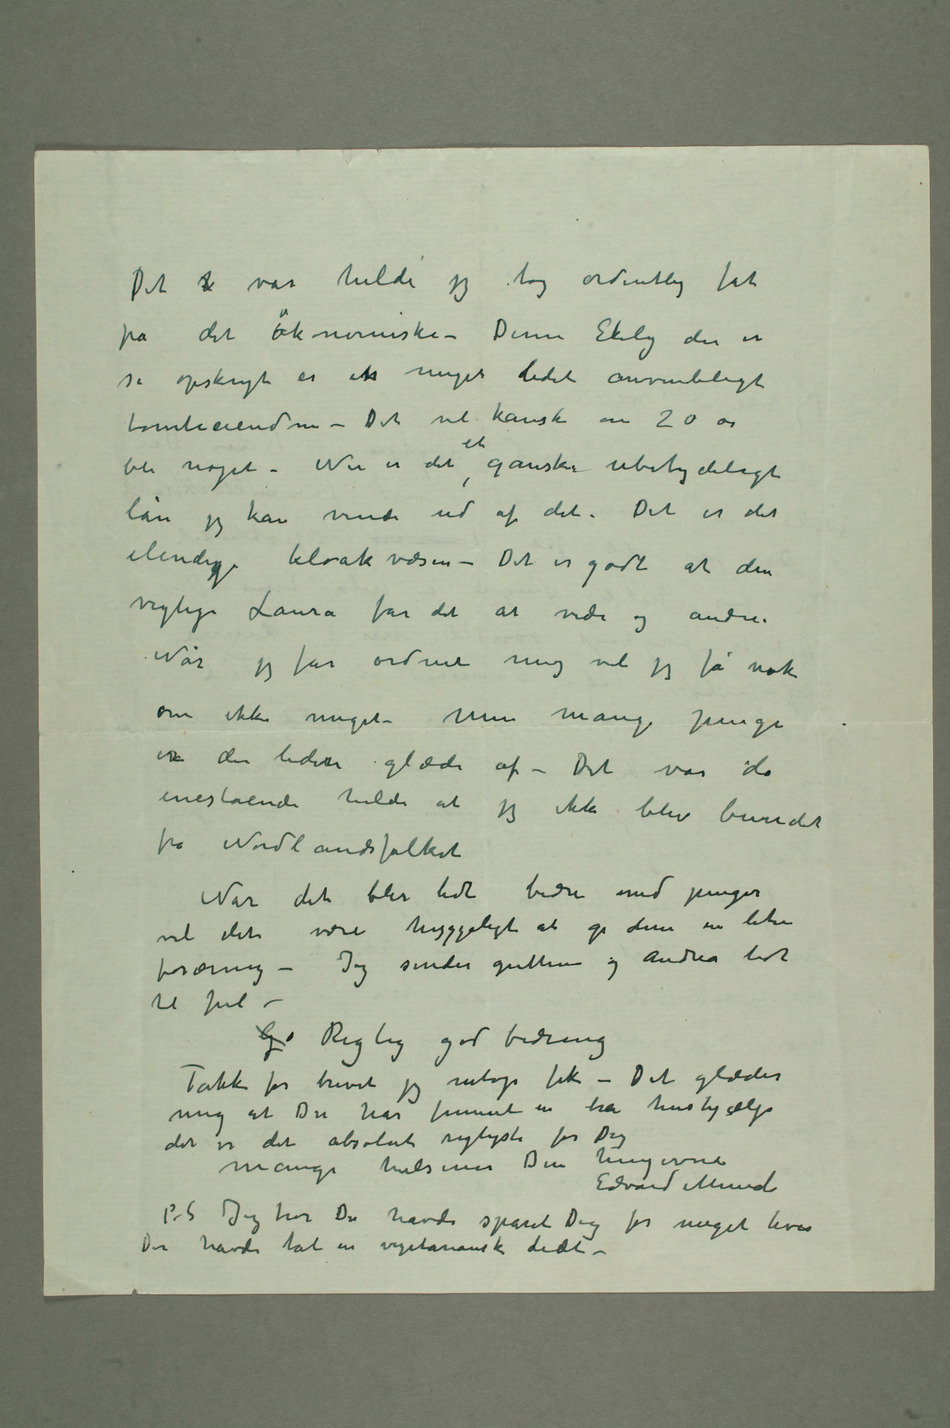 Det var heldi jeg tog ordentlig fat
på det økonomiske – Denne Ekely der er
så opskrygt er et meget lidet anvendeligt
tomteeiendom – Det vil kanske om 20 år
bli noget – Nu er det et ganske ubetydeligt
lån jeg kan vinde ud af det. Det er det
elendige kloakvæsen – Det er godt at den
vigtige Laura får det at vide og andre.
Når jeg får ordnet mig vil jeg få nok
om ikke meget – Men mange penge
er der liden glæde af – Det var da
enestående heldi at jeg ikke blev bundet
fra Nordlandsfolket
Når det blir lidt bedre med penger
vil det være hyggeligt at gi dem en liten
foræring – Jeg sender guttene og Andrea lidt
til jul –
Rigtig god bedring
Takk for brevet jeg netop fik – Det glæder
mig at Du har funnet en bra hushjælp
det er det absolut rigtigste for Dig
Mange hilsener Din hengivne
Edvard Munch
P.S Jeg tror Du havde sparet Dig for meget hvis
Du havde tat en vegetariansk diæt –